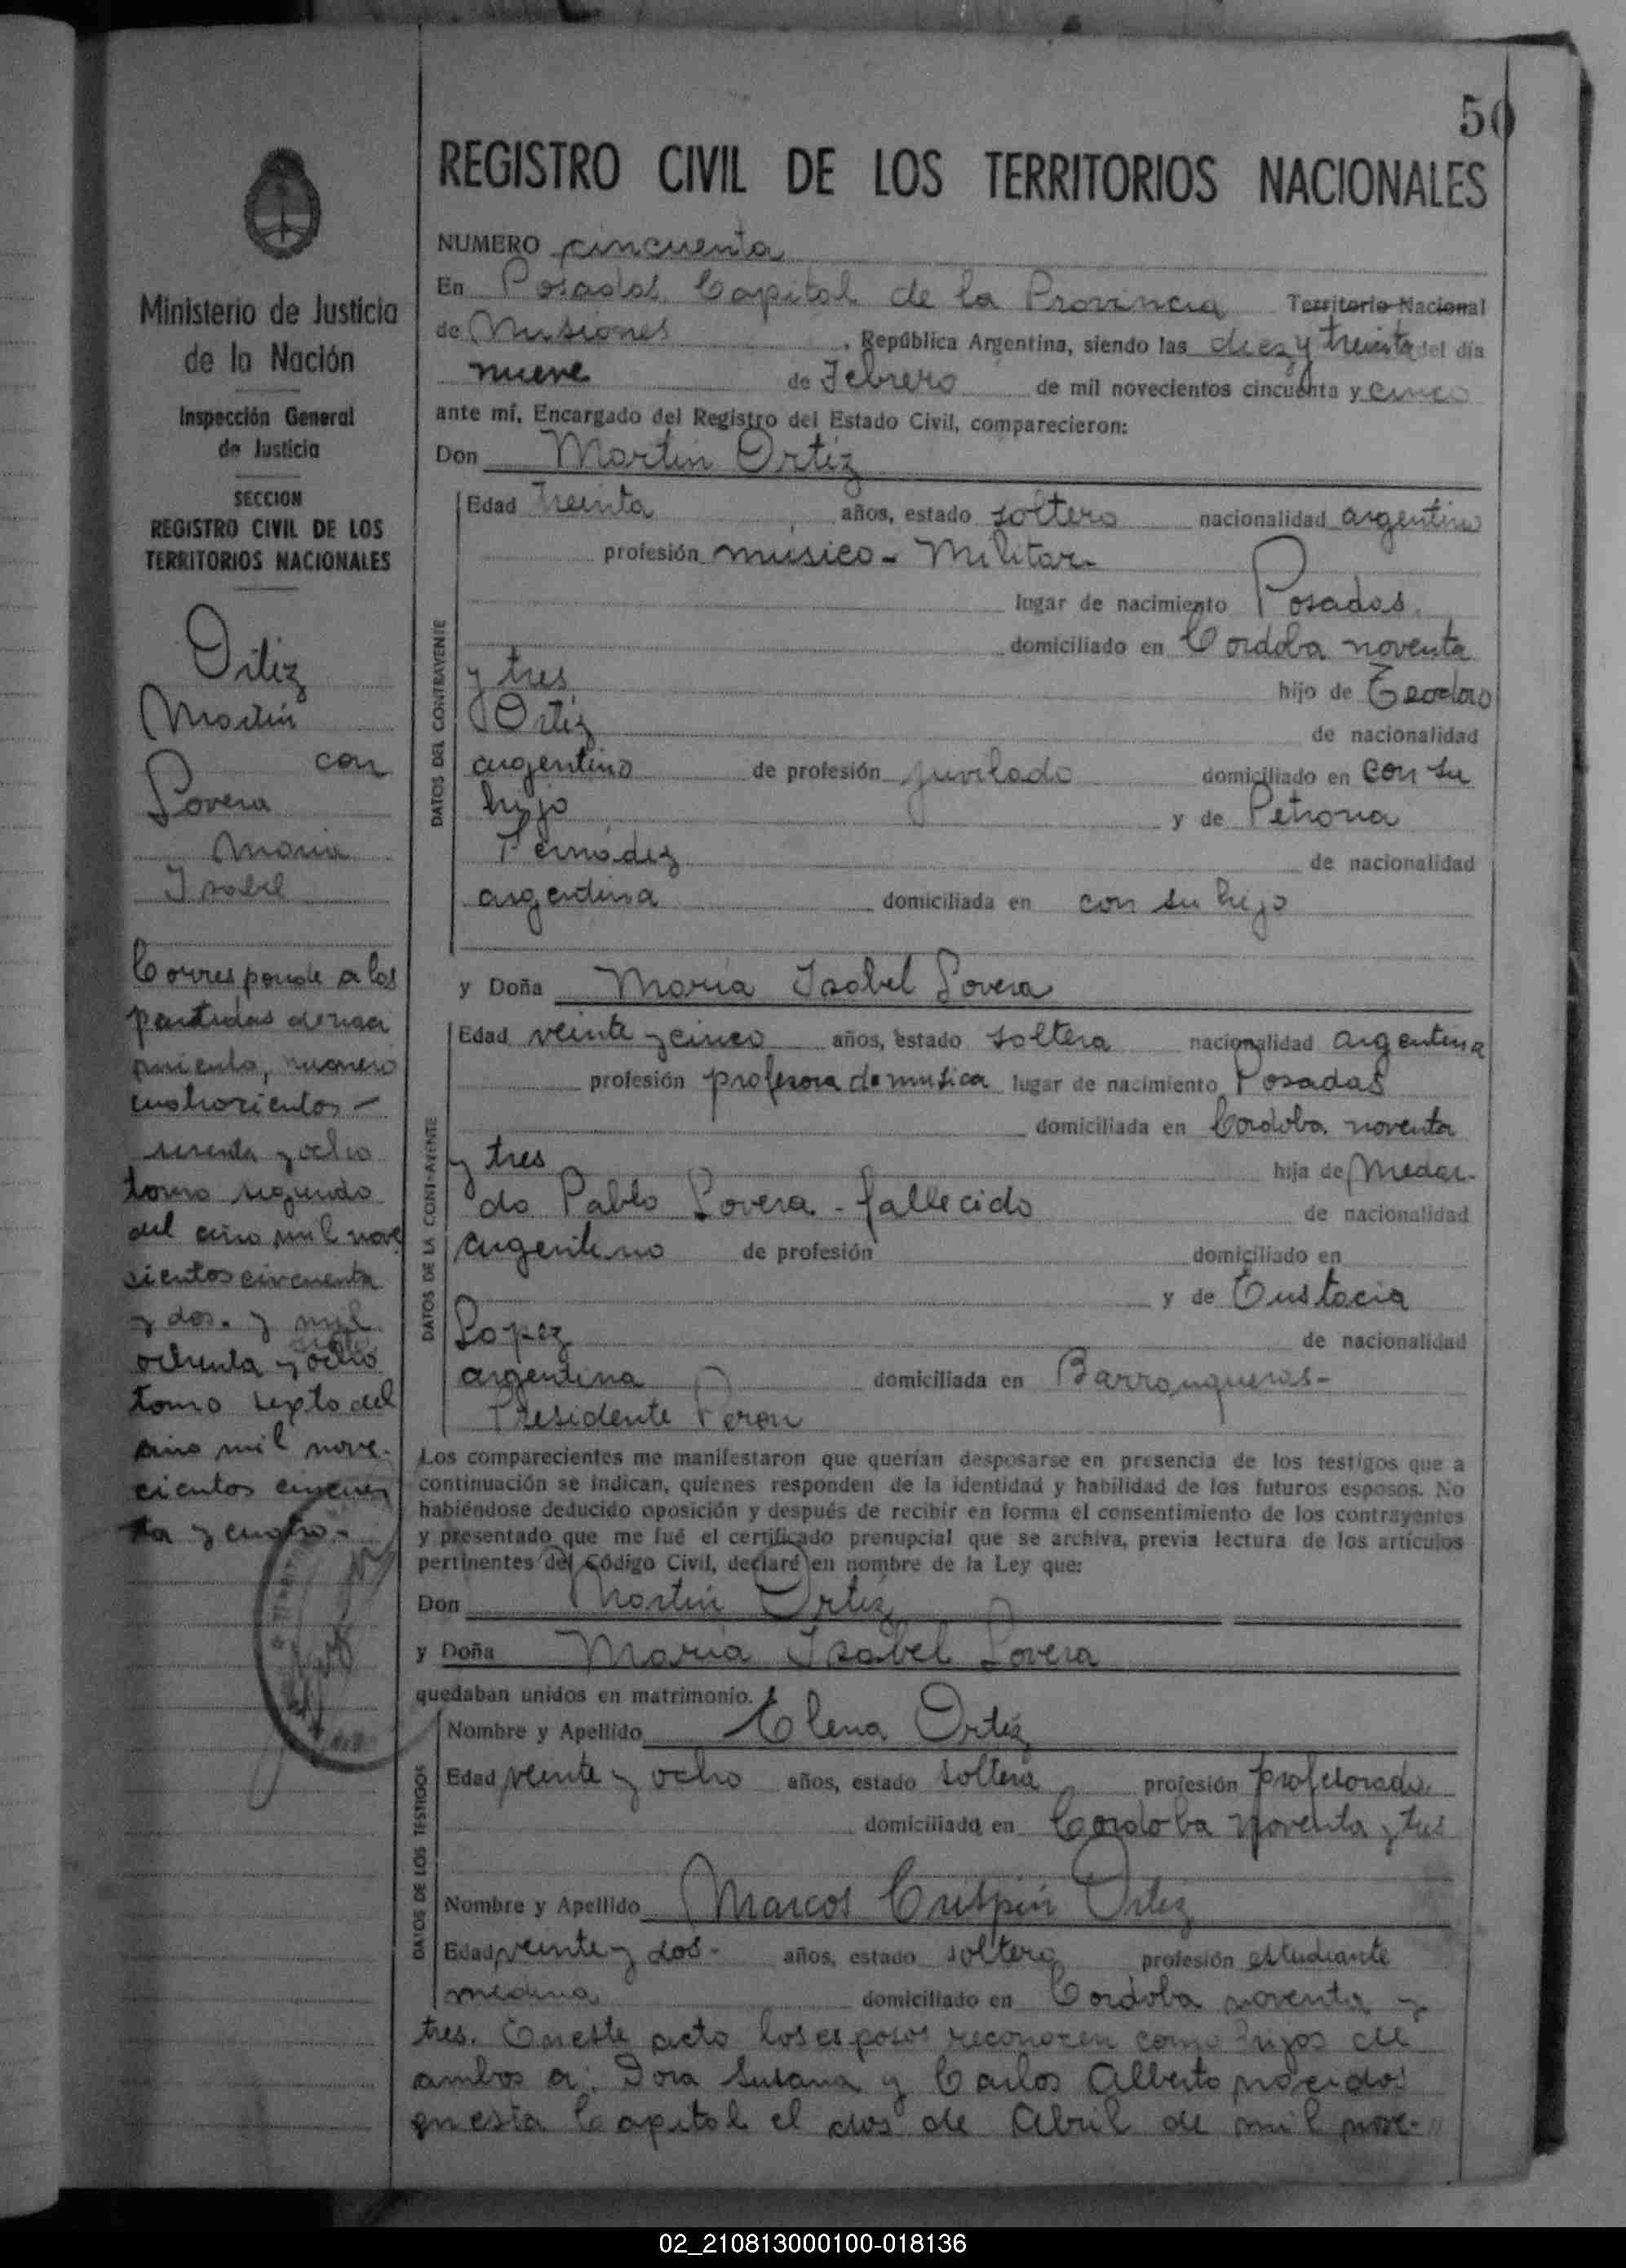 50
REGISTRO CIVIL DE LOS TERRITORIOS NACIONALES
Ministerio de Justicia
de la Nación
Inspección General
de Justicia
SECCION
REGISTRO CIVIL DE LOS
TERRITORIOS NACIONALES
Ortiz
Martín
con
Lovera
Maria
Isabel
Corresponde a las
partidas de naci
miento, numero
cuatrocientos -
sesenta y ocho
tomo segundo
del año mil nove
sientos cincuenta
y dos. y mil
ochenta y ocho
tomo sexto del
año mil nove-
cientos cincuen
ta y cuatro.-
NUMERO cincuenta
En Posadas Capital de la Provincia Territorio Nacional
de Misiones, República Argentina, siendo las diez y treinta del día
nueve de Febrero de mil novecientos cincuenta y cinco
ante mí, Encargado del Registro del Estado Civil, comparecieron:
Don Martín Ortiz
DATOS DEL CONTRAYENTE
Edad treinta años, estado soltero nacionalidad argentino
profesión músico - Militar-
lugar de nacimiento Posadas.
domiciliado en Cordoba noventa
y tres hijo de Teodoro
Ortiz de nacionalidad
argentino de profesión juvilado domiciliado en con su
hijo y de Petrona
Fernádez de nacionalidad
argentina domiciliada en con su hijo
y Doña María Isabel Lovera
DATOS DE LA CONTRAYENTE
Edad veinte y cinco años, estado soltera nacionalidad argentina
profesión profesora de musica lugar de nacimiento Posadas
domiciliada en Cordoba noventa
y tres hija de Medar-
do Pablo Lovera - fallecido de nacionalidad
argentino de profesión domiciliado en
y de Eustacia
Lopez de nacionalidad
argentina domiciliada en Barranqueras-
Presidente Peron
Los comparecientes me manifestaron que querían desposarse en presencia de los testigos que a
continuación se indican, quienes responden de la identidad y habilidad de los futuros esposos. No
habiéndose deducido oposición y después de recibir en forma el consentimiento de los contrayentes
y presentado que me fué el certificado prenupcial que se archiva, previa lectura de los artículos
pertinentes del Código Civil, declaré en nombre de la Ley que:
Don Martín Ortiz
y Doña María Isabel Lovera
quedaban unidos en matrimonio.
DATOS DE LOS TESTIGOS
Nombre y Apellido Elena Ortiz
Edad veinte y ocho años, estado soltera profesión profesorado
domiciliado en Cordoba noventa y tres
Nombre y Apellido Marcos Crispín Ortiz
Edad veinte y dos- años, estado soltero profesión estudiante
domiciliado en Cordoba noventa y
tres. En este acto los esposos reconocen como hijos de
ambos a: Dora Susana y Carlos Alberto nacidos
en esta Capital el dos de Abril de mil nove-
02_210813000100-018136